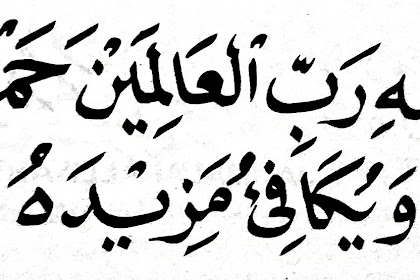 ـهِ رَبِّ الْعَالَمِيْنَ حَمْـ
وَيُكَافِئُ مَزِيْدَهُ